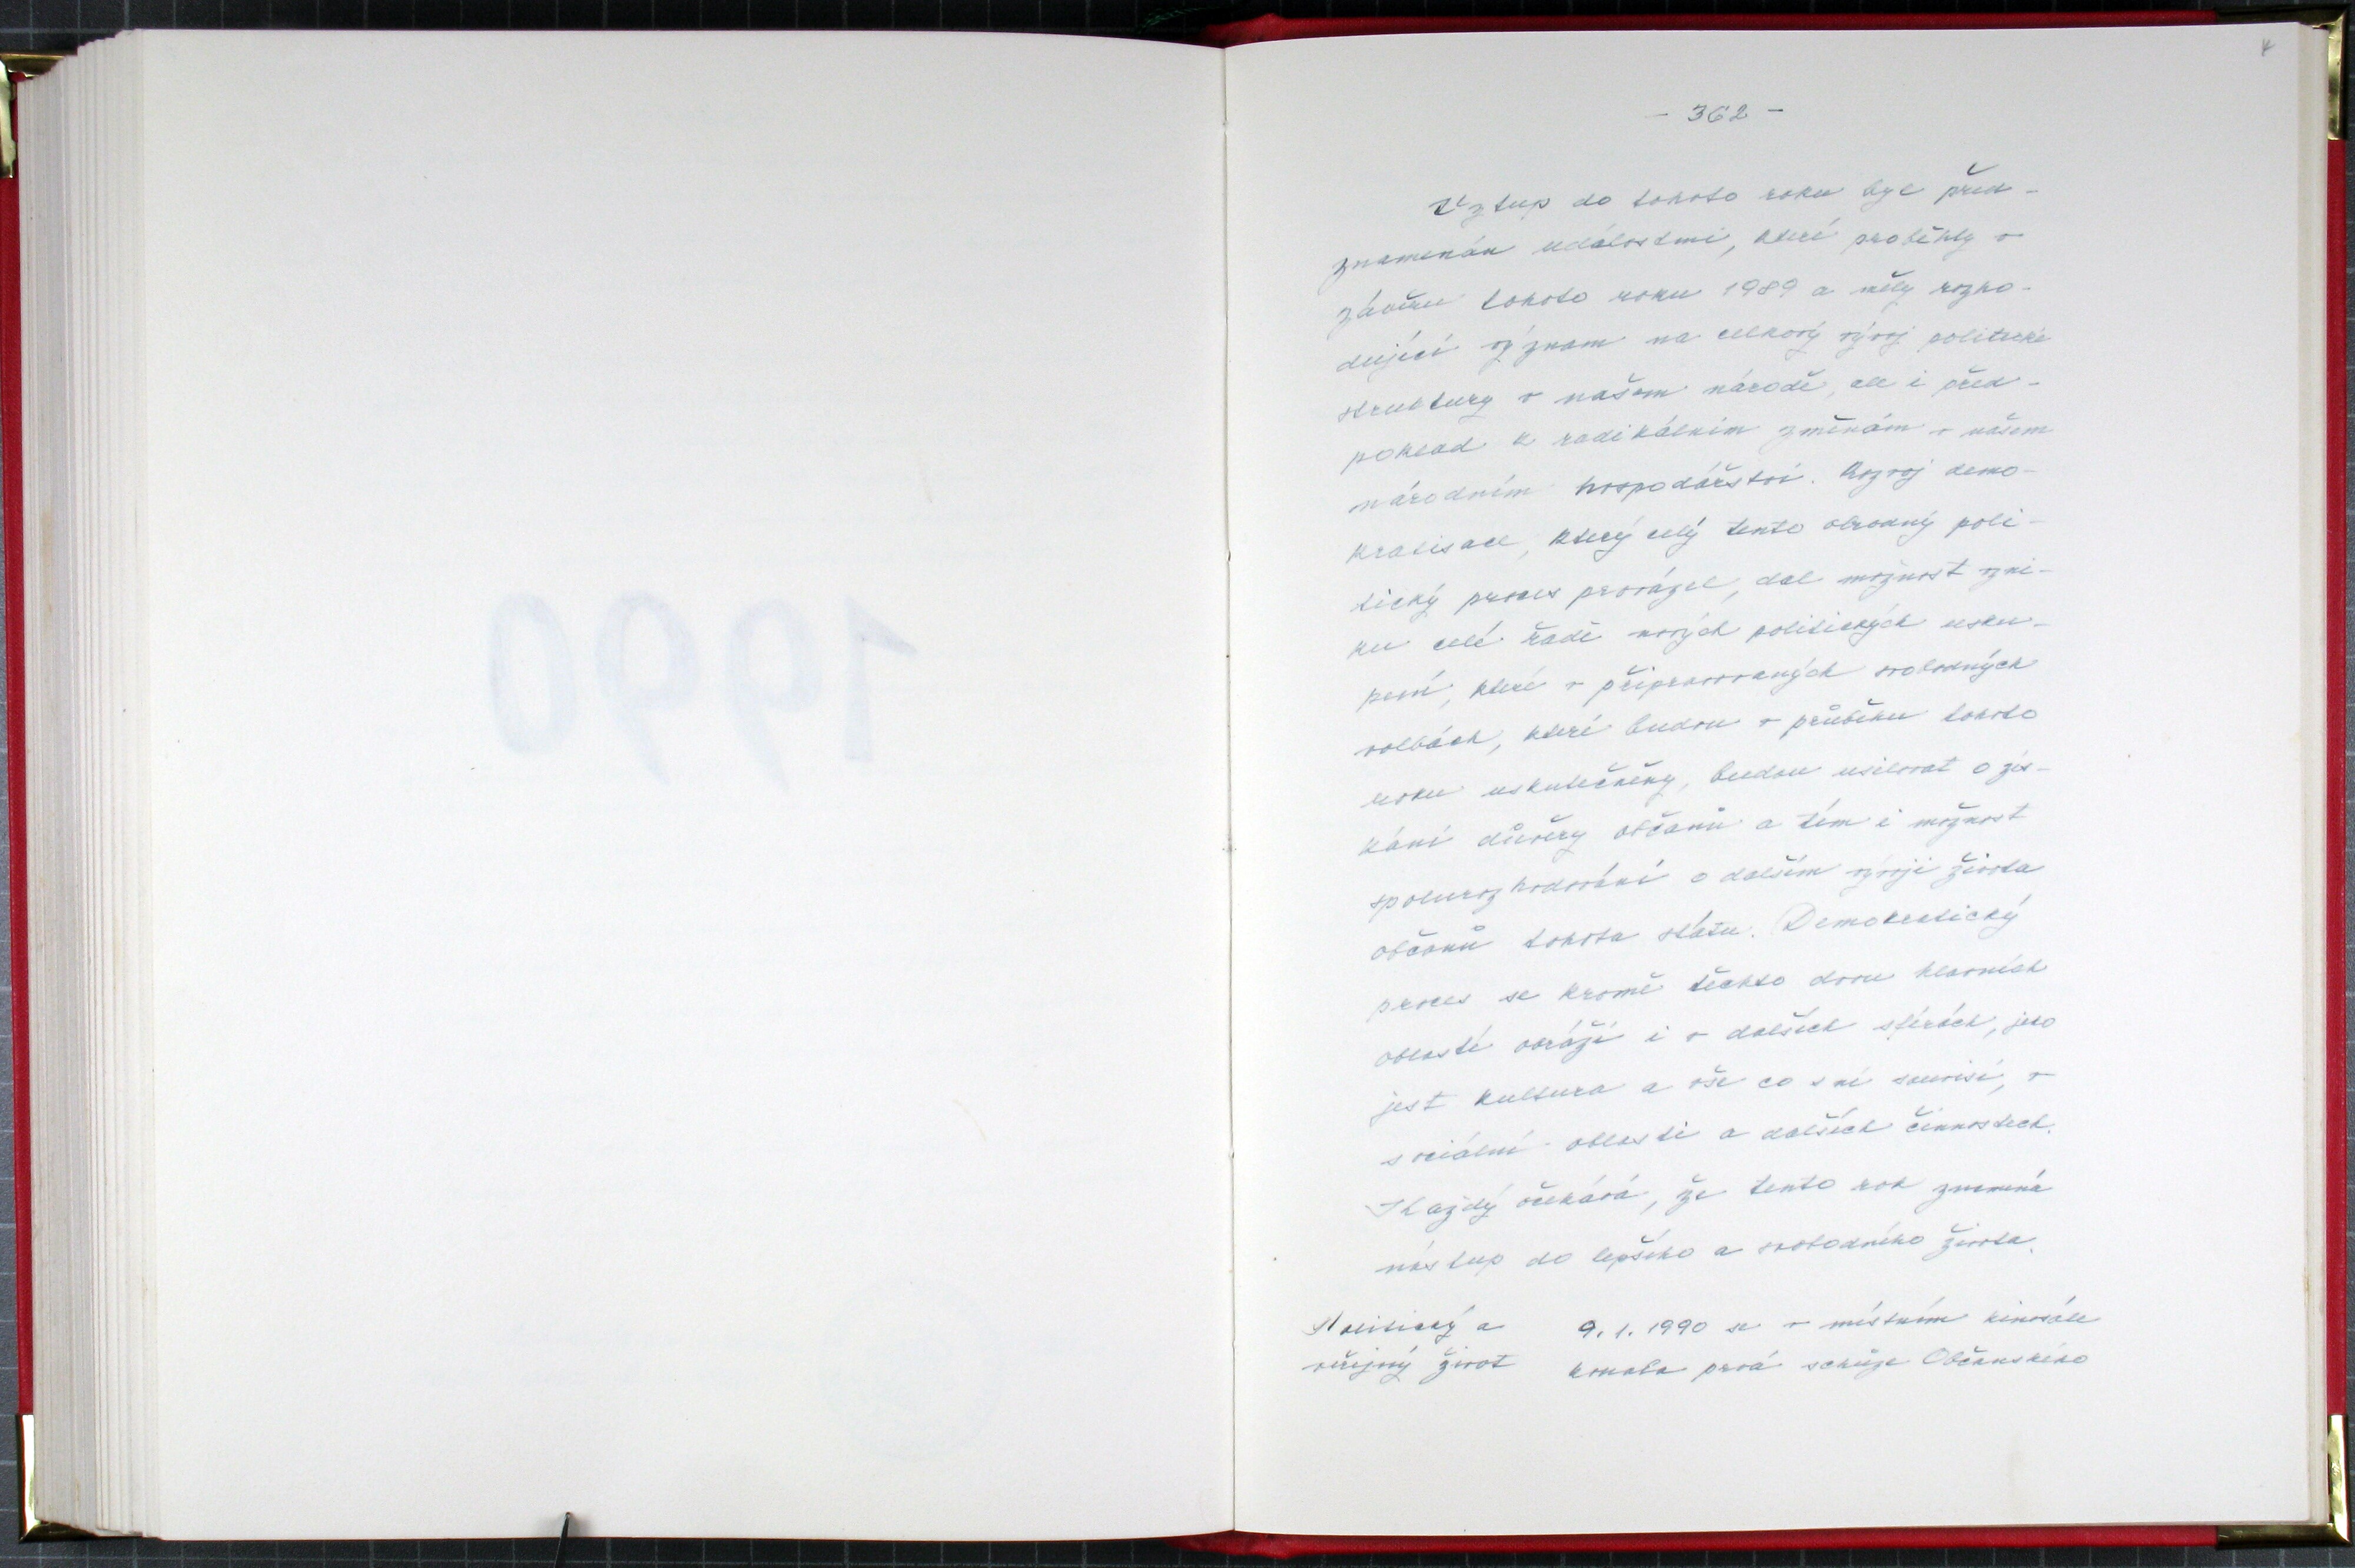 - 362 -
Vztup do tohoto roku byl před-
znamenán událostmi, které proběhly v
závěru tohoto roku 1989 a měly rozho-
dující význam na celkový vývoj politické
struktury v našem národě, ale i před-
poklad k radikálním změnám v našem
národním hospodářství. Rozvoj demo-
kratisace, který celý tento obrodný poli-
tický proces provázel, dal možnost vzni-
ku celé řadě nových politických usku-
pení, které v připravovaných svobodných
volbách, které budou v průběhu tohoto
roku uskutečněny, budou usilovat o zís-
kání důvěry občanů a tím i možnost
spolurozhodování o dalším vývoji života
občanů tohoto státu. Demokratický
proces se kromě těchto dvou hlavních
oblastí odráží i v dalších sférách, jako
jest kultura a vše co s ní souvisí, v
sociální oblasti a dalších činnostech.
Každý očekává, že tento rok znamená
nástup do lepšího a svobodného života.
Politický a
veřejný život
9. 1. 1990 se v místním kinosále
konala prvá schůze Občanského
1990